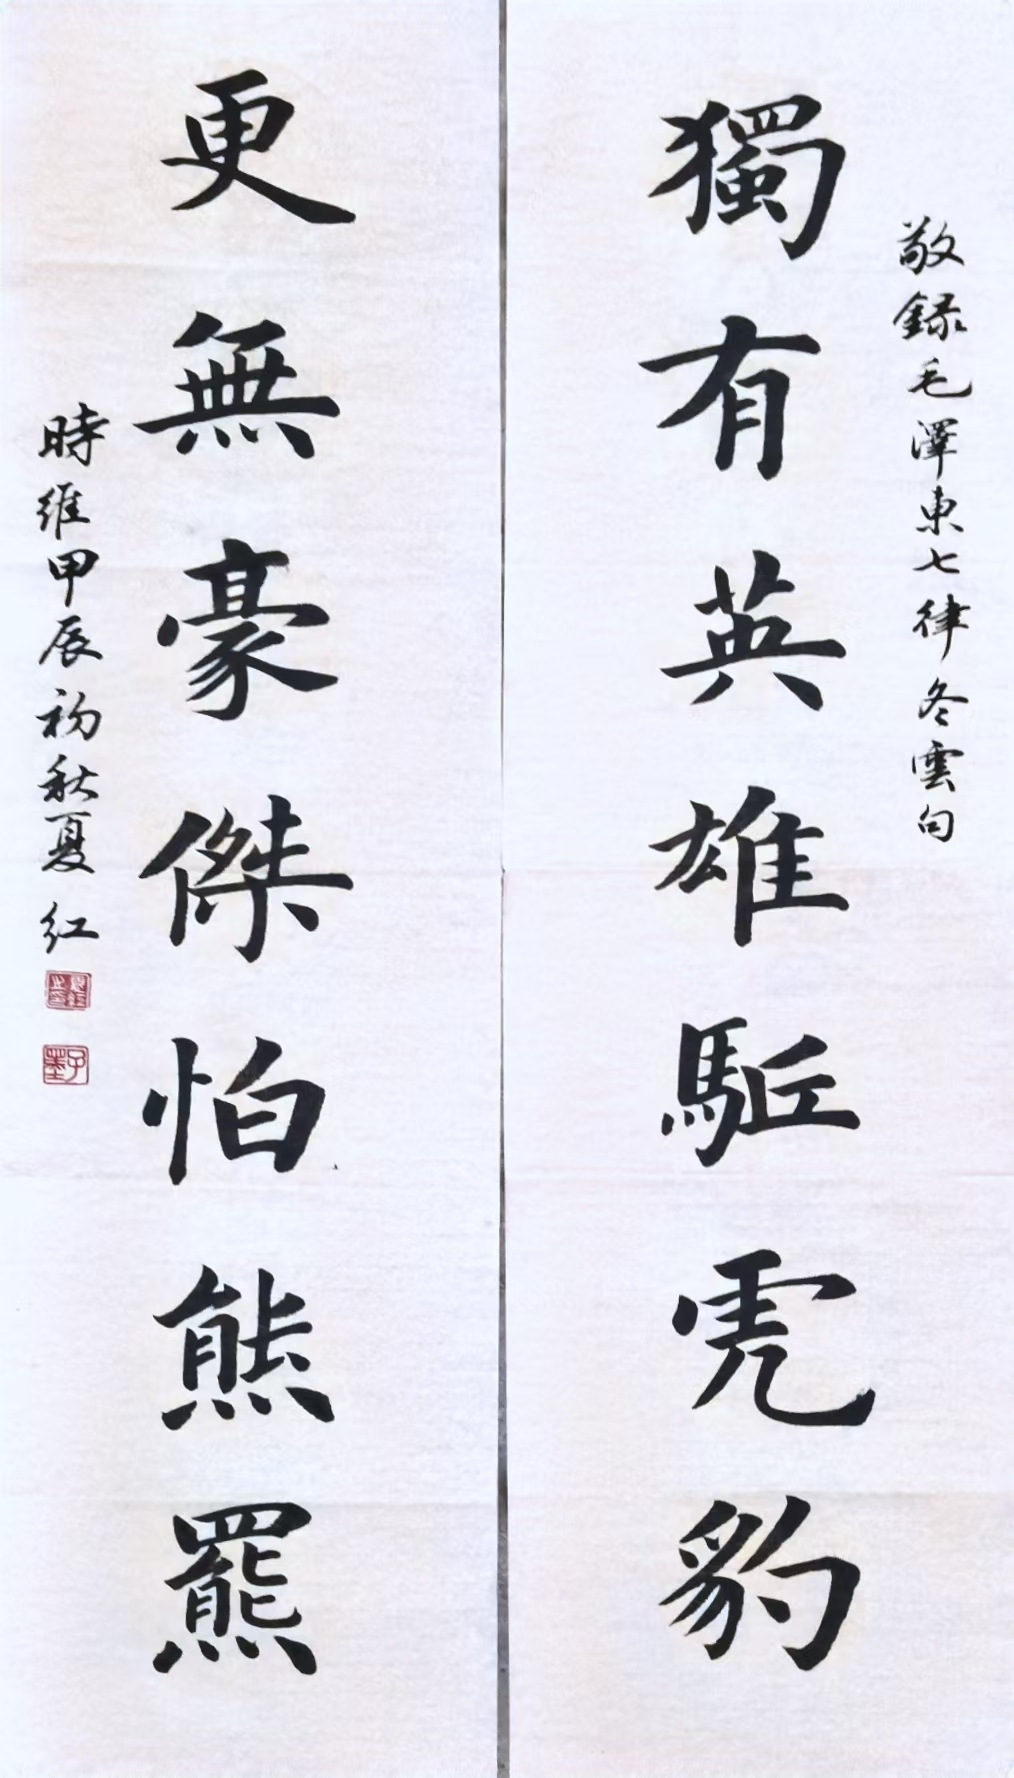 敬録毛澤東七律冬雲句
獨有英雄駈虎豹
更無豪傑怕熊羆
時維甲辰初秋夏紅